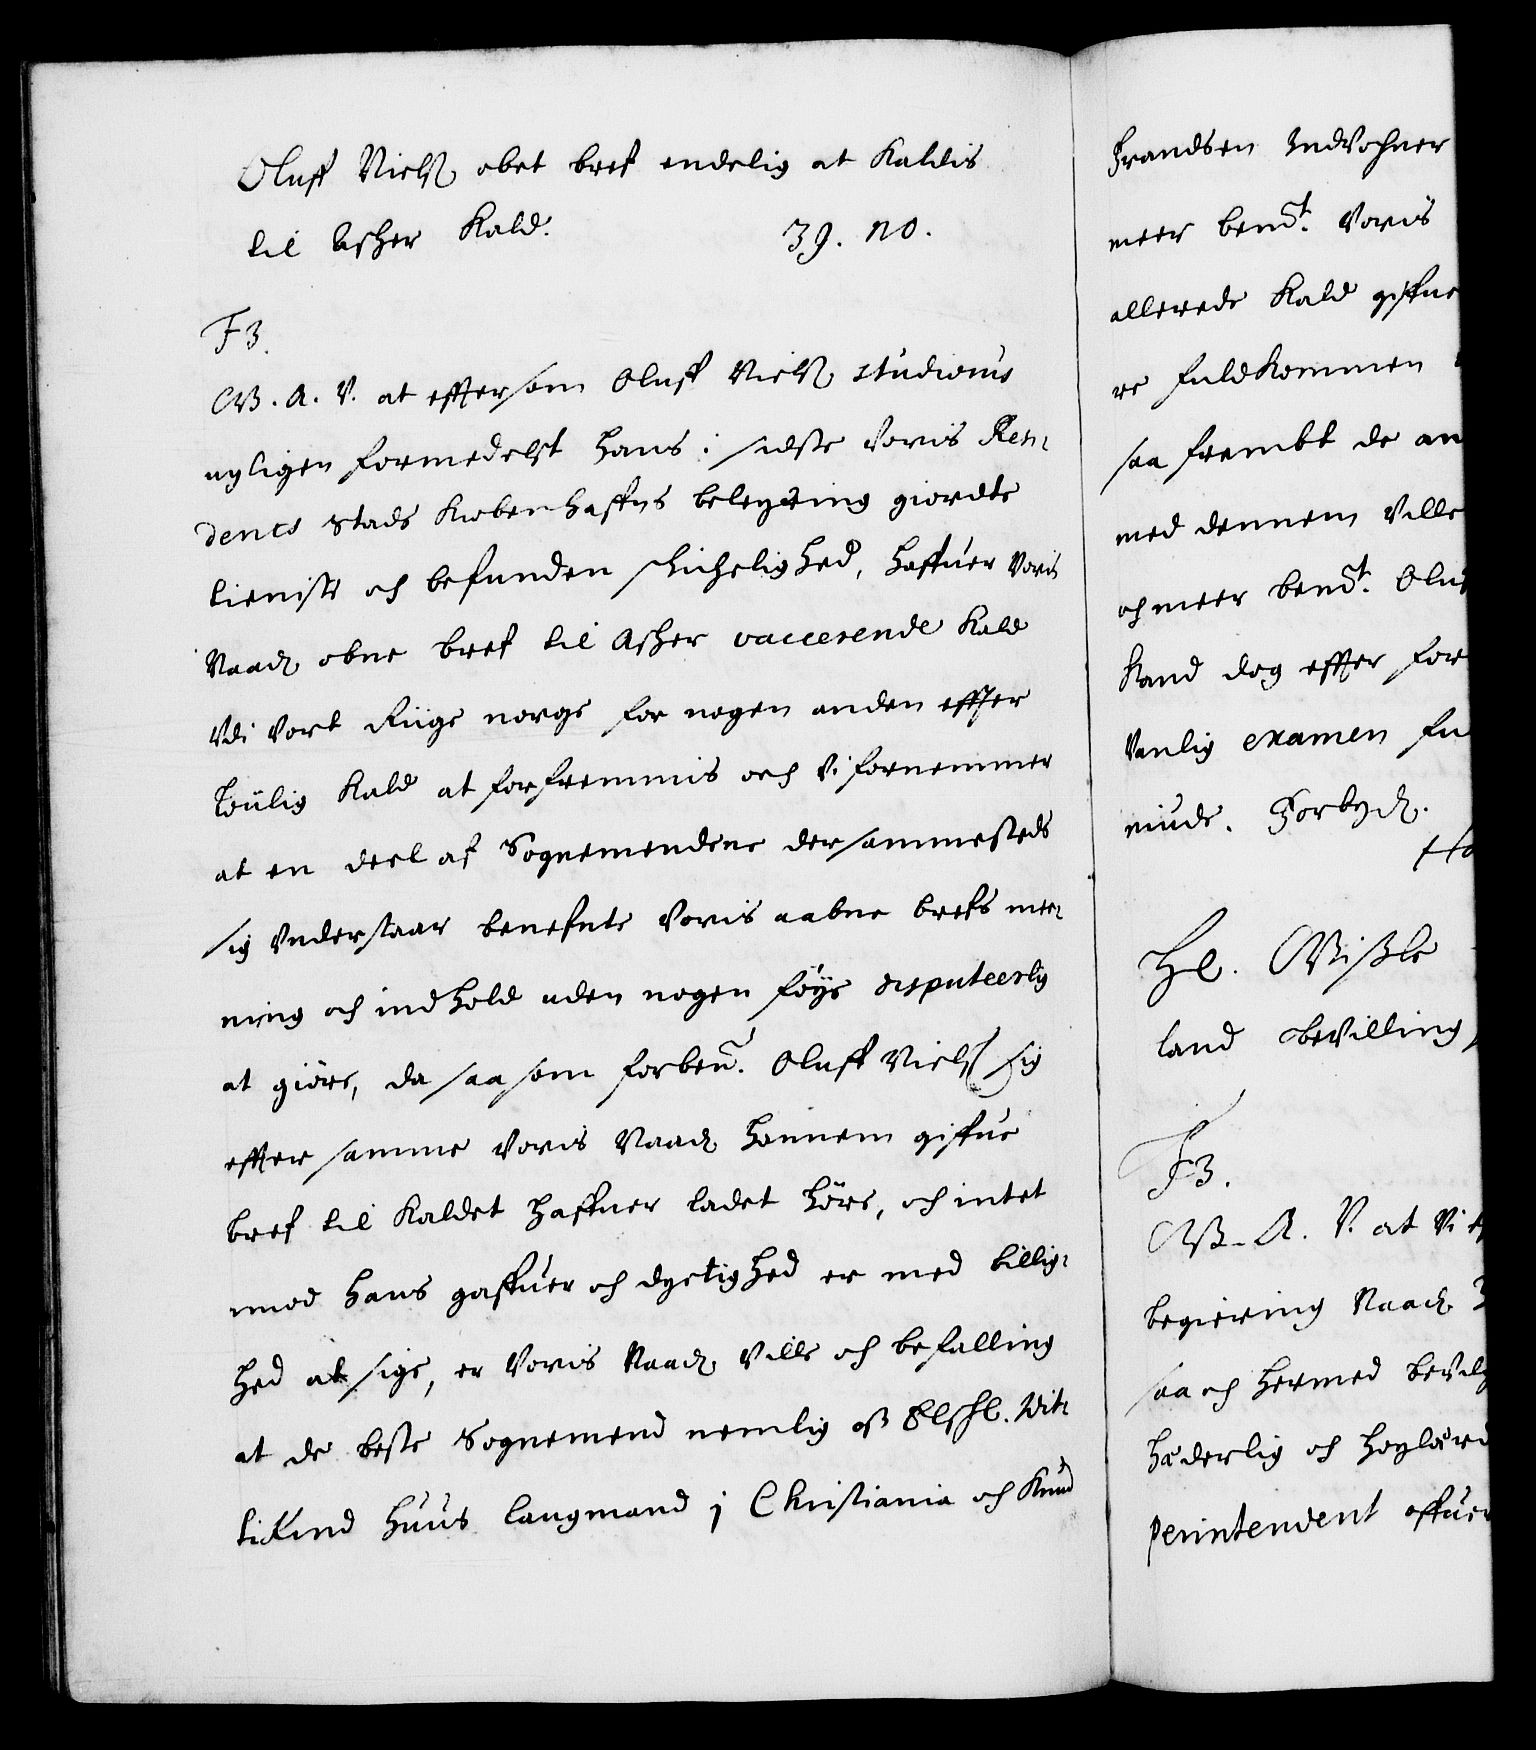 Oluff Niels obet bref endelig at Kaldis
til Asker Kald. 39. no.
F3.
G.A.V. at efftersom Oluff Niels studiosus
nyligen formedelst hans i sidste voris Resi-
dents Stads Kiøbenhaffns beleyring giordte
tieniste och befunden skichelighed, haffuer voris
Naad obne bref til Asker vaccerende Kald
vdi vort Riige norge for nogen anden effter
louflig Kald at forfremmis och vi fornemmer
at en deel af Sognemendene dersammesteds
sig vnderstaar benefnte voris aabne brefs mee-
ning och indhold uden nogen føye disputeerlig
at giøre, da saa som forben. Oluff Niels sig
effter samme voris Naad hannem giffue
bref til Kaldet haffuer ladet høre, och intet
imod hans gaffuer och dyctighed er med billig-
hed at sige, er voris Naad ville och befalling
at de beste Sognemend nemlig oß Elschl. Vit-
tikind Huus Laugmand i Christiania och Knud
Frandsen Indvohner
meer bend. voris
allerede Kald giffue
re fuldkommen
saa frembt de an
med dennem ville
och meer bend. Oluf
Kand dog effter for
vanlig examen fu
minde. Forbyd.
Ha
H. Wißle
land bevilling
F3.
G.A.V. at vi ef
begiering Naad
saa och hermed bevilg
hæderlig och høylærd
perintendent offuer